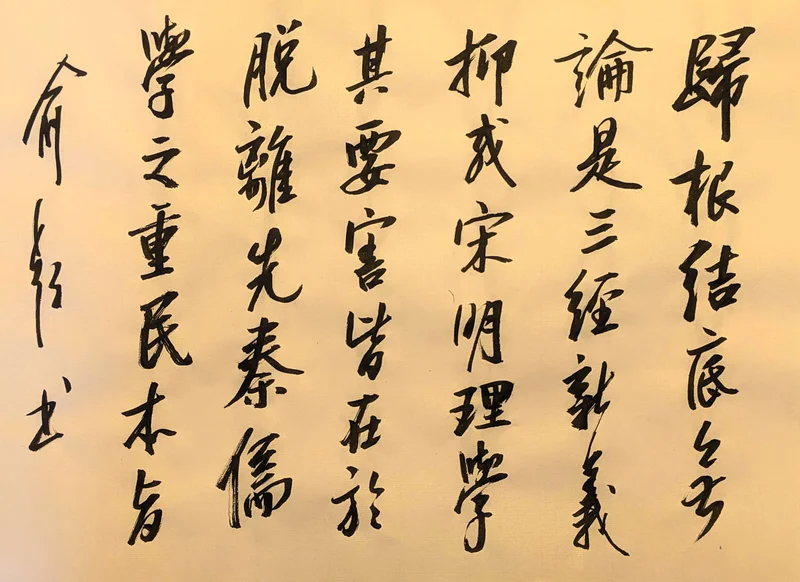 歸根結底無
論是三經新義
抑或宋明理學
其要害皆在於
脱離先秦儒
學之重民本旨
俞 书